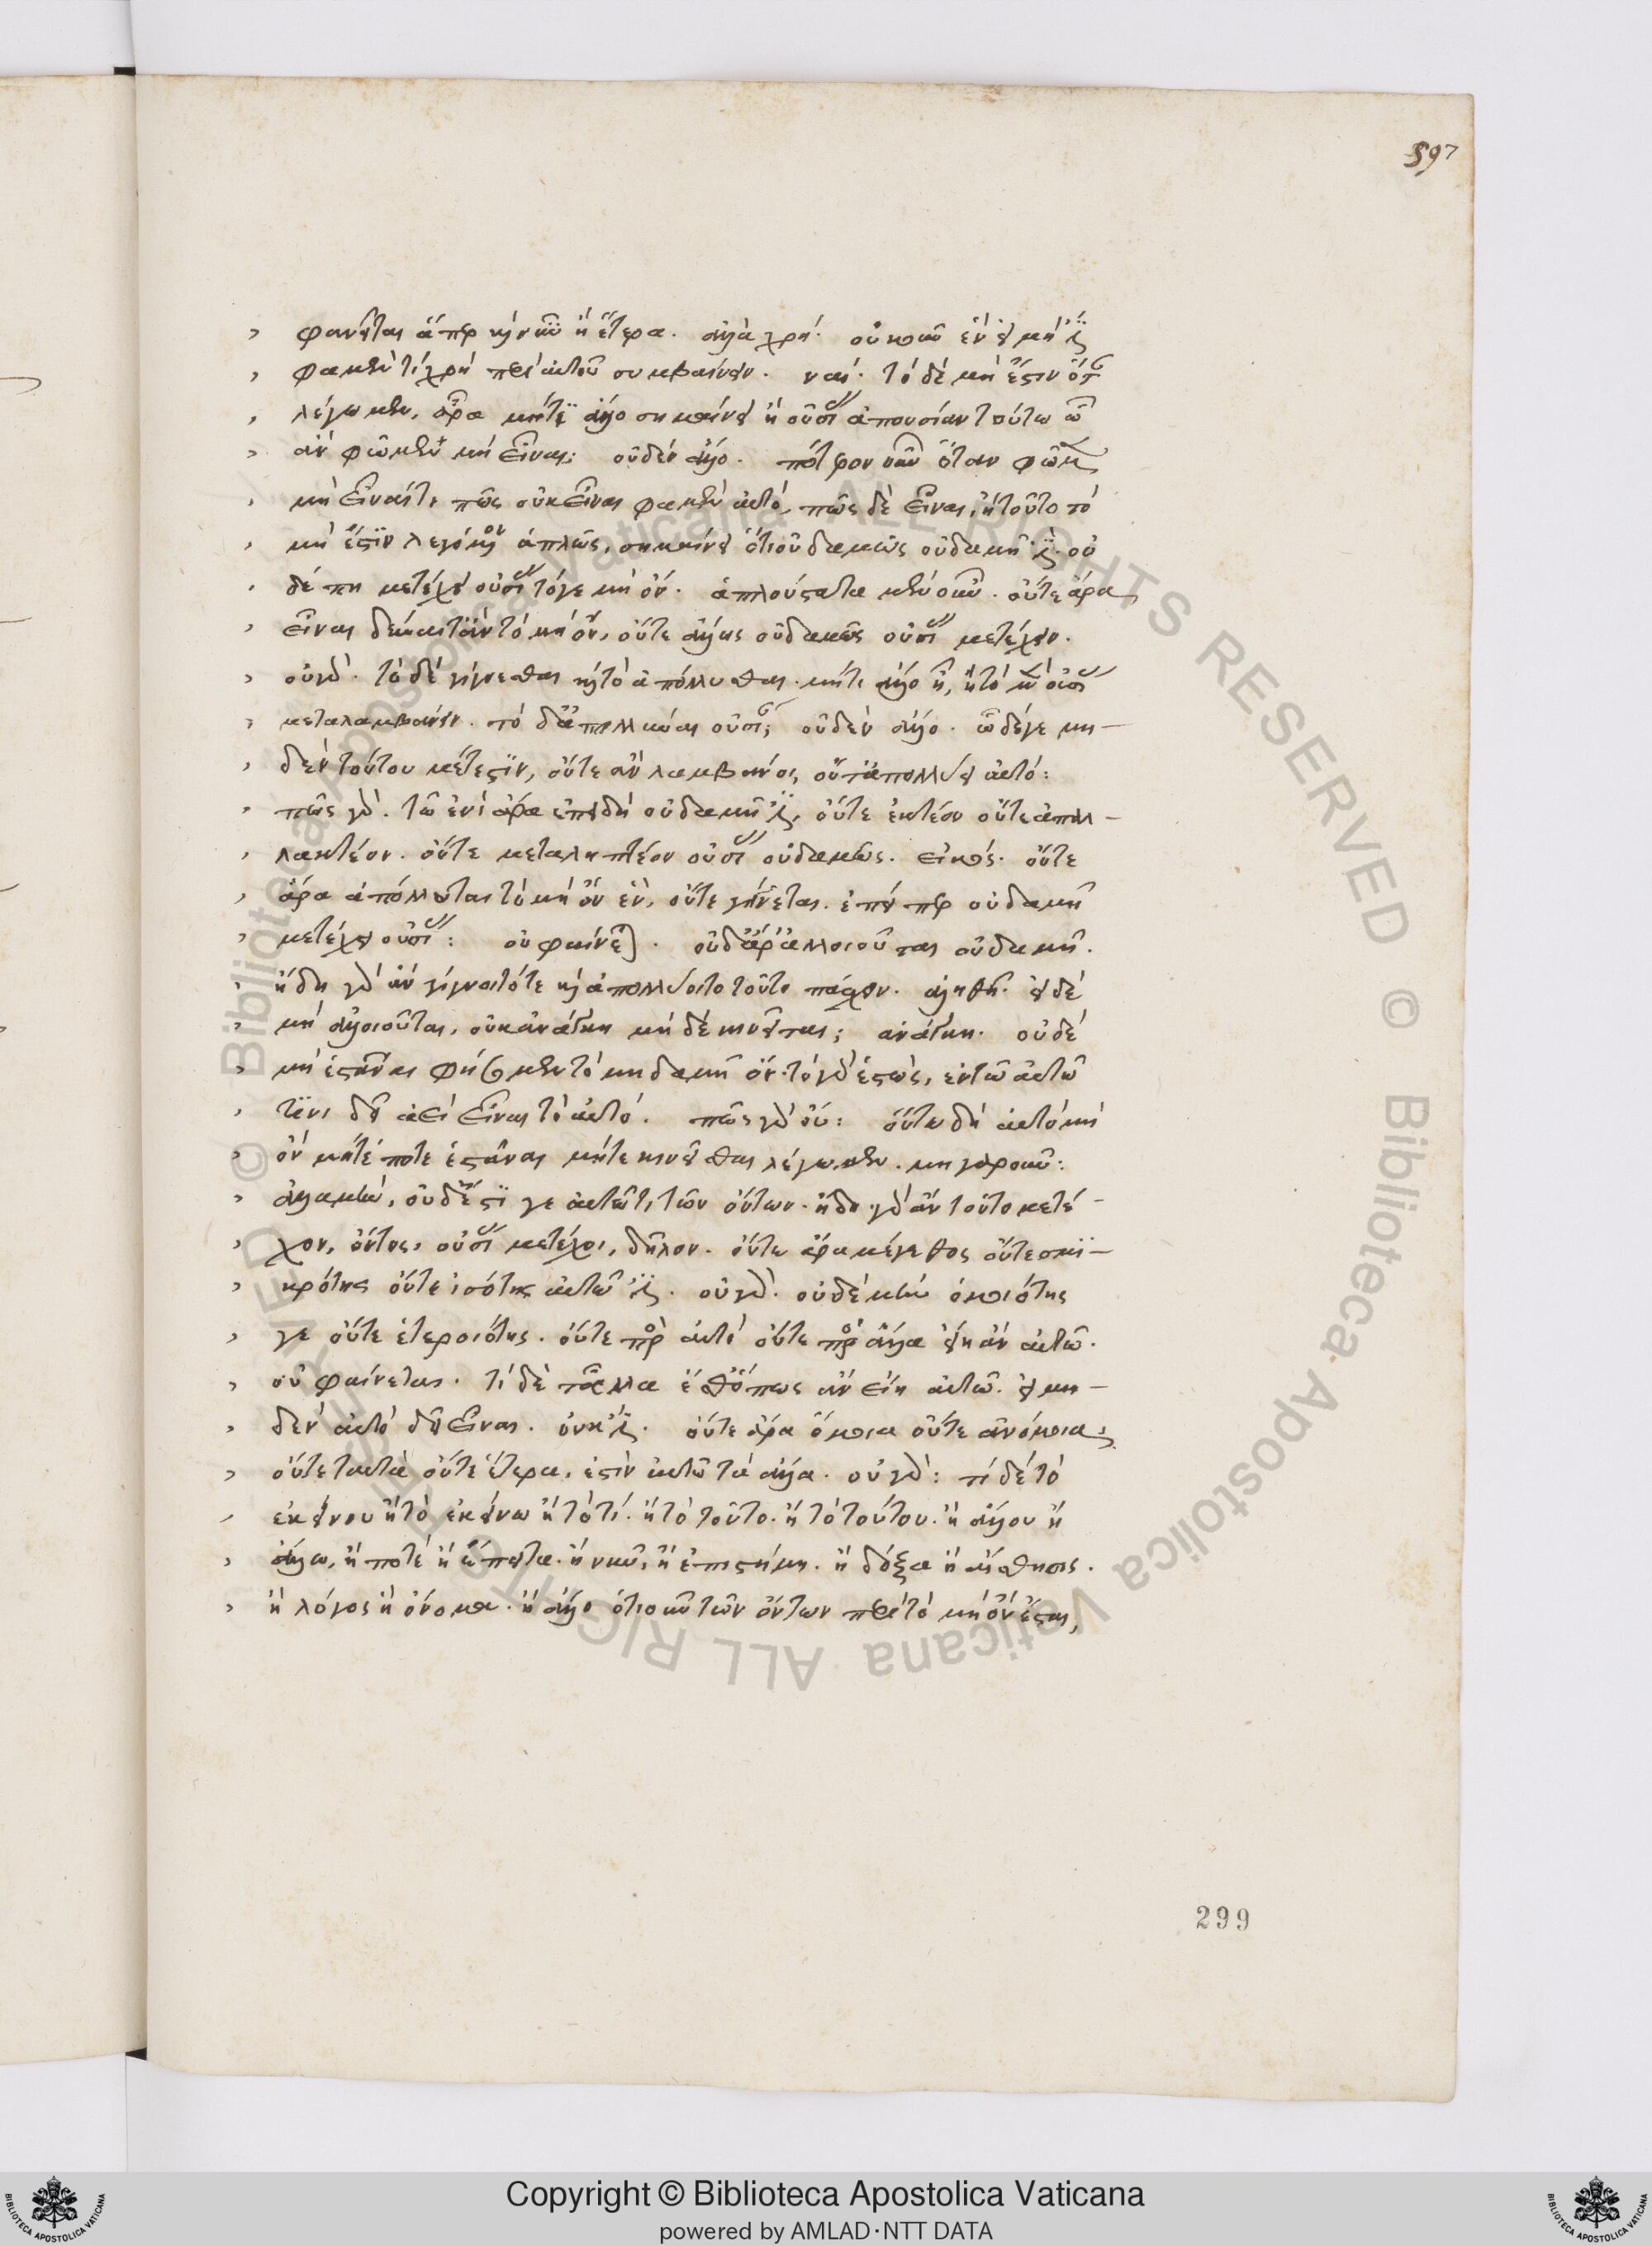 597
φανεῖται ἅπερ καὶ νῦν ἢ ἕτερα. ἀλλὰ χρή. οὐκοῦν ἓν εἰ μή ἐστι
φαμὲν τί χρὴ περὶ αὐτοῦ συμβαίνειν. ναί. τὸ δὲ μὴ ἔστιν ὅταν
λέγωμεν, ἆρα μή τι ἄλλο σημαίνει ἢ οὐσίας ἀπουσίαν τούτω ὧ
ἂν φῶμεν μὴ εἶναι; οὐδὲν ἄλλο. πότερον οὖν ὅταν φῶμεν
μὴ εἶναί τι πῶς οὐκ εἶναι φαμὲν αὐτό, πῶς δὲ εἶναι, ἢ τοῦτο τὸ
μὴ ἔστιν λεγόμενον ἁπλῶς, σημαίνει ὅτι οὐδαμῶς οὐδαμῆ ἐστιν. οὐ
δέ πη μετέχει οὐσίας τό γε μὴ ὄν. ἁπλούστατα μὲν οὖν. οὔτε ἄρα
εἶναι δύναιτο ἂν τὸ μὴ ὄν, οὔτε ἄλλως οὐδαμῶς οὐσίας μετέχειν.
οὐ γάρ. τὸ δὲ γίγνεσθαι καὶ τὸ ἀπόλλυσθαι μή τι ἄλλο ἦ, ἢ τὸ μὲν οὐσίας
μεταλαμβάνειν. τὸ δ' ἀπολλύναι οὐσίαν; οὐδὲν ἄλλο. ὧ δέ γε μη-
δὲν τούτου μέτεστιν, οὔτ' ἂν λαμβάνοι, οὔτ' ἀπολλύοι αὐτό:
πῶς γάρ. τῶ ἑνὶ ἄρα ἐπειδὴ οὐδαμῆ ἐστιν, οὔτε ἑκτέον οὔτε ἀπαλ-
λακτέον. οὔτε μεταληπτέον οὐσίας οὐδαμῶς. εἰκός. οὔτε
ἄρα ἀπόλλυται τὸ μὴ ὂν ἕν, οὔτε γίγνεται. ἐπείπερ οὐδαμῆ
μετέχει οὐσίας: οὐ φαίνεται. οὐδ' ἄρ' ἀλλοιοῦται οὐδαμῆ.
ἤδη γὰρ ἂν γίγνοιτό τε καὶ ἀπολλύοιτο τοῦτο πάσχον. ἀληθῆ. εἰ δὲ
μὴ ἀλλοιοῦται, οὐκ ἀνάγκη μηδὲ κινεῖσθαι; ἀνάγκη. οὐδὲ
μὴ ἑστάναι φήσομεν τὸ μηδαμῆ ὄν. τὸ γὰρ ἑστὼς, ἐν τῶ αὐτῶ
τινι δεῖ ἀεὶ εἶναι τὸ αὐτό. πῶς γὰρ οὔ: οὕτω δὴ αὐτὸ μὴ
ὂν μήτέ ποτε ἑστάναι μήτε κινεῖσθαι λέγωμεν. μὴ γὰρ οὖν:
ἀλλὰ μὴν, οὐδ' ἔστί γε αὐτῶ τι τῶν ὄντων. ἤδη γὰρ ἂν τοῦτο μετέ-
χον, ὄντος, οὐσίας μετέχοι, δῆλον. οὔτε ἄρα μέγεθος οὔτε σμι-
κρότης οὔτε ἰσότης αὐτῶ ἐστιν. οὐ γάρ. οὐδὲ μὴν ὁμοιότης
γε οὔτε ἑτεροιότης. οὔτε πρὸς αὐτὸ οὔτε πρὸς ἄλλα εἴη ἂν αὐτῶ.
οὐ φαίνεται. τί δὲ τἆλλα ἔσθ' ὅπως ἂν εἴη αὐτῶ. εἰ μη-
δὲν αὐτῶ δεῖ εἶναι. οὐκ ἔστι. οὔτε ἄρα ὅμοια οὔτε ἀνόμοια,
οὔτε ταὐτὰ οὔτε ἕτερα, ἐστὶν αὐτῶ τὰ ἄλλα. οὐ γάρ: τί δὲ τὸ
ἐκείνου ἢ τὸ ἐκείνω ἢ τὸ τί. ἢ τὸ τοῦτο. ἢ τὸ τούτου. ἢ ἄλλου ἢ
ἄλλω, ἢ ποτὲ ἢ ἔπειτα. ἢ νῦν, ἢ ἐπιστήμη. ἢ δόξα ἢ αἴσθησις.
ἢ λόγος ἢ ὄνομα. ἢ ἄλλο ὁτιοῦν τῶν ὄντων περὶ τὸ μὴ ὂν ἔσται,
299
© Biblioteca Apostolica Vaticana ALL RIGHTS RESERVED © Biblioteca Apostolica Vaticana ALL RIGHTS RESERVED
Copyright © Biblioteca Apostolica Vaticana
powered by AMLAD·NTT DATA
BIBLIOTECA APOSTOLICA VATICANA
BIBLIOTECA APOSTOLICA VATICANA